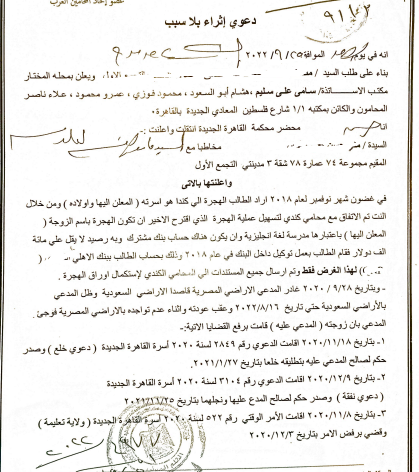 عضو إتحاد المحامين العرب
٩١/٢
دعوي إثراء بلا سبب
انه في يوم الموافق ٢٠٢٢/٩/٢٥
بناء على طلب السيد / الأولى ويعلن بمحله المختار
مكتب الاســـتاذة/ سامى على سليم ,هشام أبو السعود , محمود فوزي , عمرو محمود , علاء ناصر
المحامون والكائن بمكتبه ١/١ شارع فلسطين المعادي الجديدة بالقاهرة.
انا محضر محكمة القاهرة الجديدة انتقلت واعلنت :-
السيدة / مخاطبا مع
المقيم مجموعة ٧٤ عمارة ٧٨ شقة ٣ مدينتي التجمع الأول
واعلنتها بالأتى
في غضون شهر نوفمبر لعام ٢٠١٨ اراد الطالب الهجرة الي كندا هو اسرته ( المعلن اليها واولاده ) ومن خلال
النت تم الاتفاق مع محامي كندي لتسهيل عملية الهجرة الذي اقترح الاخير ان تكون الهجرة باسم الزوجة (
المعلن اليها ) باعتبارها مدرسة لغة انجليزية وان يكون هناك حساب بنك مشترك وبه رصيد لا يقل علي مائة
الف دولار فقام الطالب بعمل توكيل داخل البنك في عام ٢٠١٨ وذلك بحساب الطالب ببنك الاهلي
) لهذا الغرض فقط وتم ارسال جميع المستندات الي المحامي الكندي لإستكمال اوراق الهجرة .
وبتاريخ ٢٠٢٠/٩/٢٨ غادر المدعي الاراضي المصرية قاصدا الاراضي السعودية وظل المدعي
بالأراضي السعودية حتي تاريخ ٢٠٢٢/٨/١٦ وعقب عودته واثناء عدم تواجده بالاراضي المصرية فوجئ
المدعي بان زوجته ( المدعي عليه ) قامت برفع القضايا الاتية:-
١- بتاريخ ٢٠٢٠/١١/١٨ اقامت الدعوي رقم ٢٨٤٩ لسنة ٢٠٢٠ أسرة القاهرة الجديدة ( دعوي خلع ) وصدر
حكم لصالح المدعي عليه بتطليقه خلعا بتاريخ ٢٠٢١/١/٢٧.
٢- بتاريخ ٢٠٢٠/١٢/٩ اقامت الدعوي رقم ٣١٠٤ لسنة ٢٠٢٠ أسرة القاهرة الجديدة
( دعوي نفقة ) وصدر حكم لصالح المدع عليها ونجلهما بتاريخ ٢٠٢١/١١/٢٥
٣- بتاريخ ٢٠٢٠/١١/٨ اقامت الأمر الوقتي رقم ٥٢٢ لسنة ٢٠٢٠ أسرة القاهرة الجديدة ( ولاية تعليمة )
وقضي برفض الامر بتاريخ ٢٠٢٠/١٢/٣